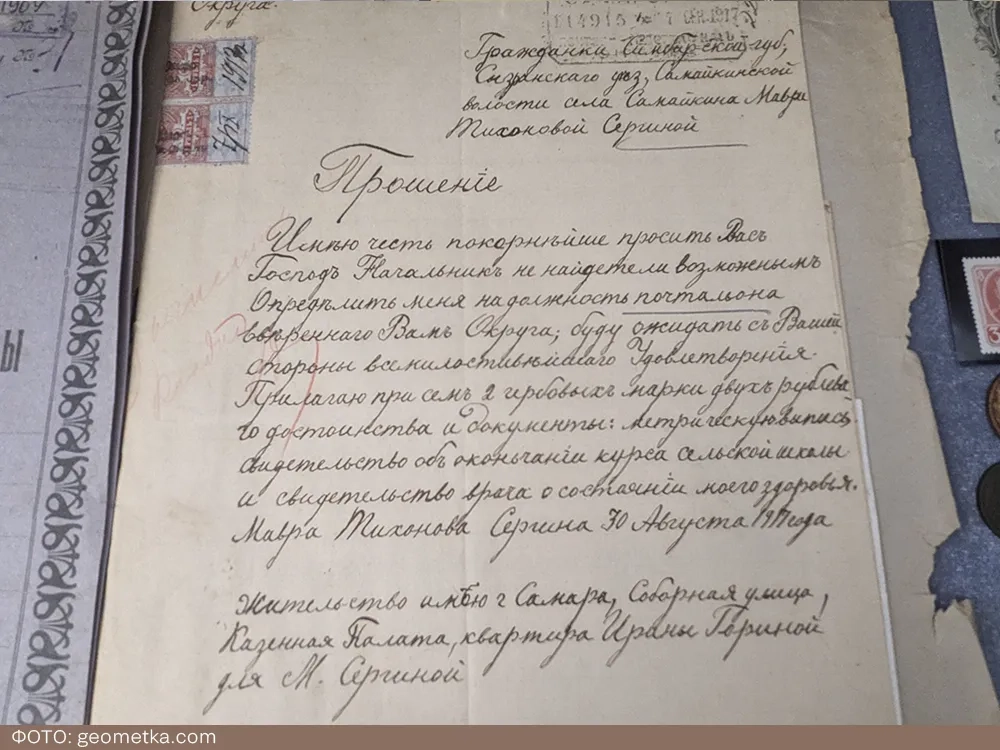 1904
Округа.
Е14915 СЕН.1917
Гражданки Симбирской губ,
Сызранскаго уѣз, Самайкинской
волости села Самайкина Мавры
Тихоновой Сергиной
1917г
7/IX
Прошенiе
Имѣю честь покорнѣйше просить Васъ
Господъ Начальникъ не найдетели возможнымъ
Опредѣлить меня на должность почтальона
ввѣреннаго Вамъ Округа; буду ожидать съ Вашей
стороны всемилостивѣйшаго Удовлетворенiя.
Прилагаю при семъ 2 гербовыхъ марки двухъ рублева
го достоинства и документы: метрическую выпись,
свидетельство объ окончанiи курса сельской школы
и свидетельство врача о состоянiи моего здоровья.
Мавра Тихонова Сергина 30 Августа 1917 года
Жительство имѣю г Самара, Соборная улица,
Казенная Палата, квартира Ираны Гориной
для М. Сергиной
Ы
ФОТО: geometka.com